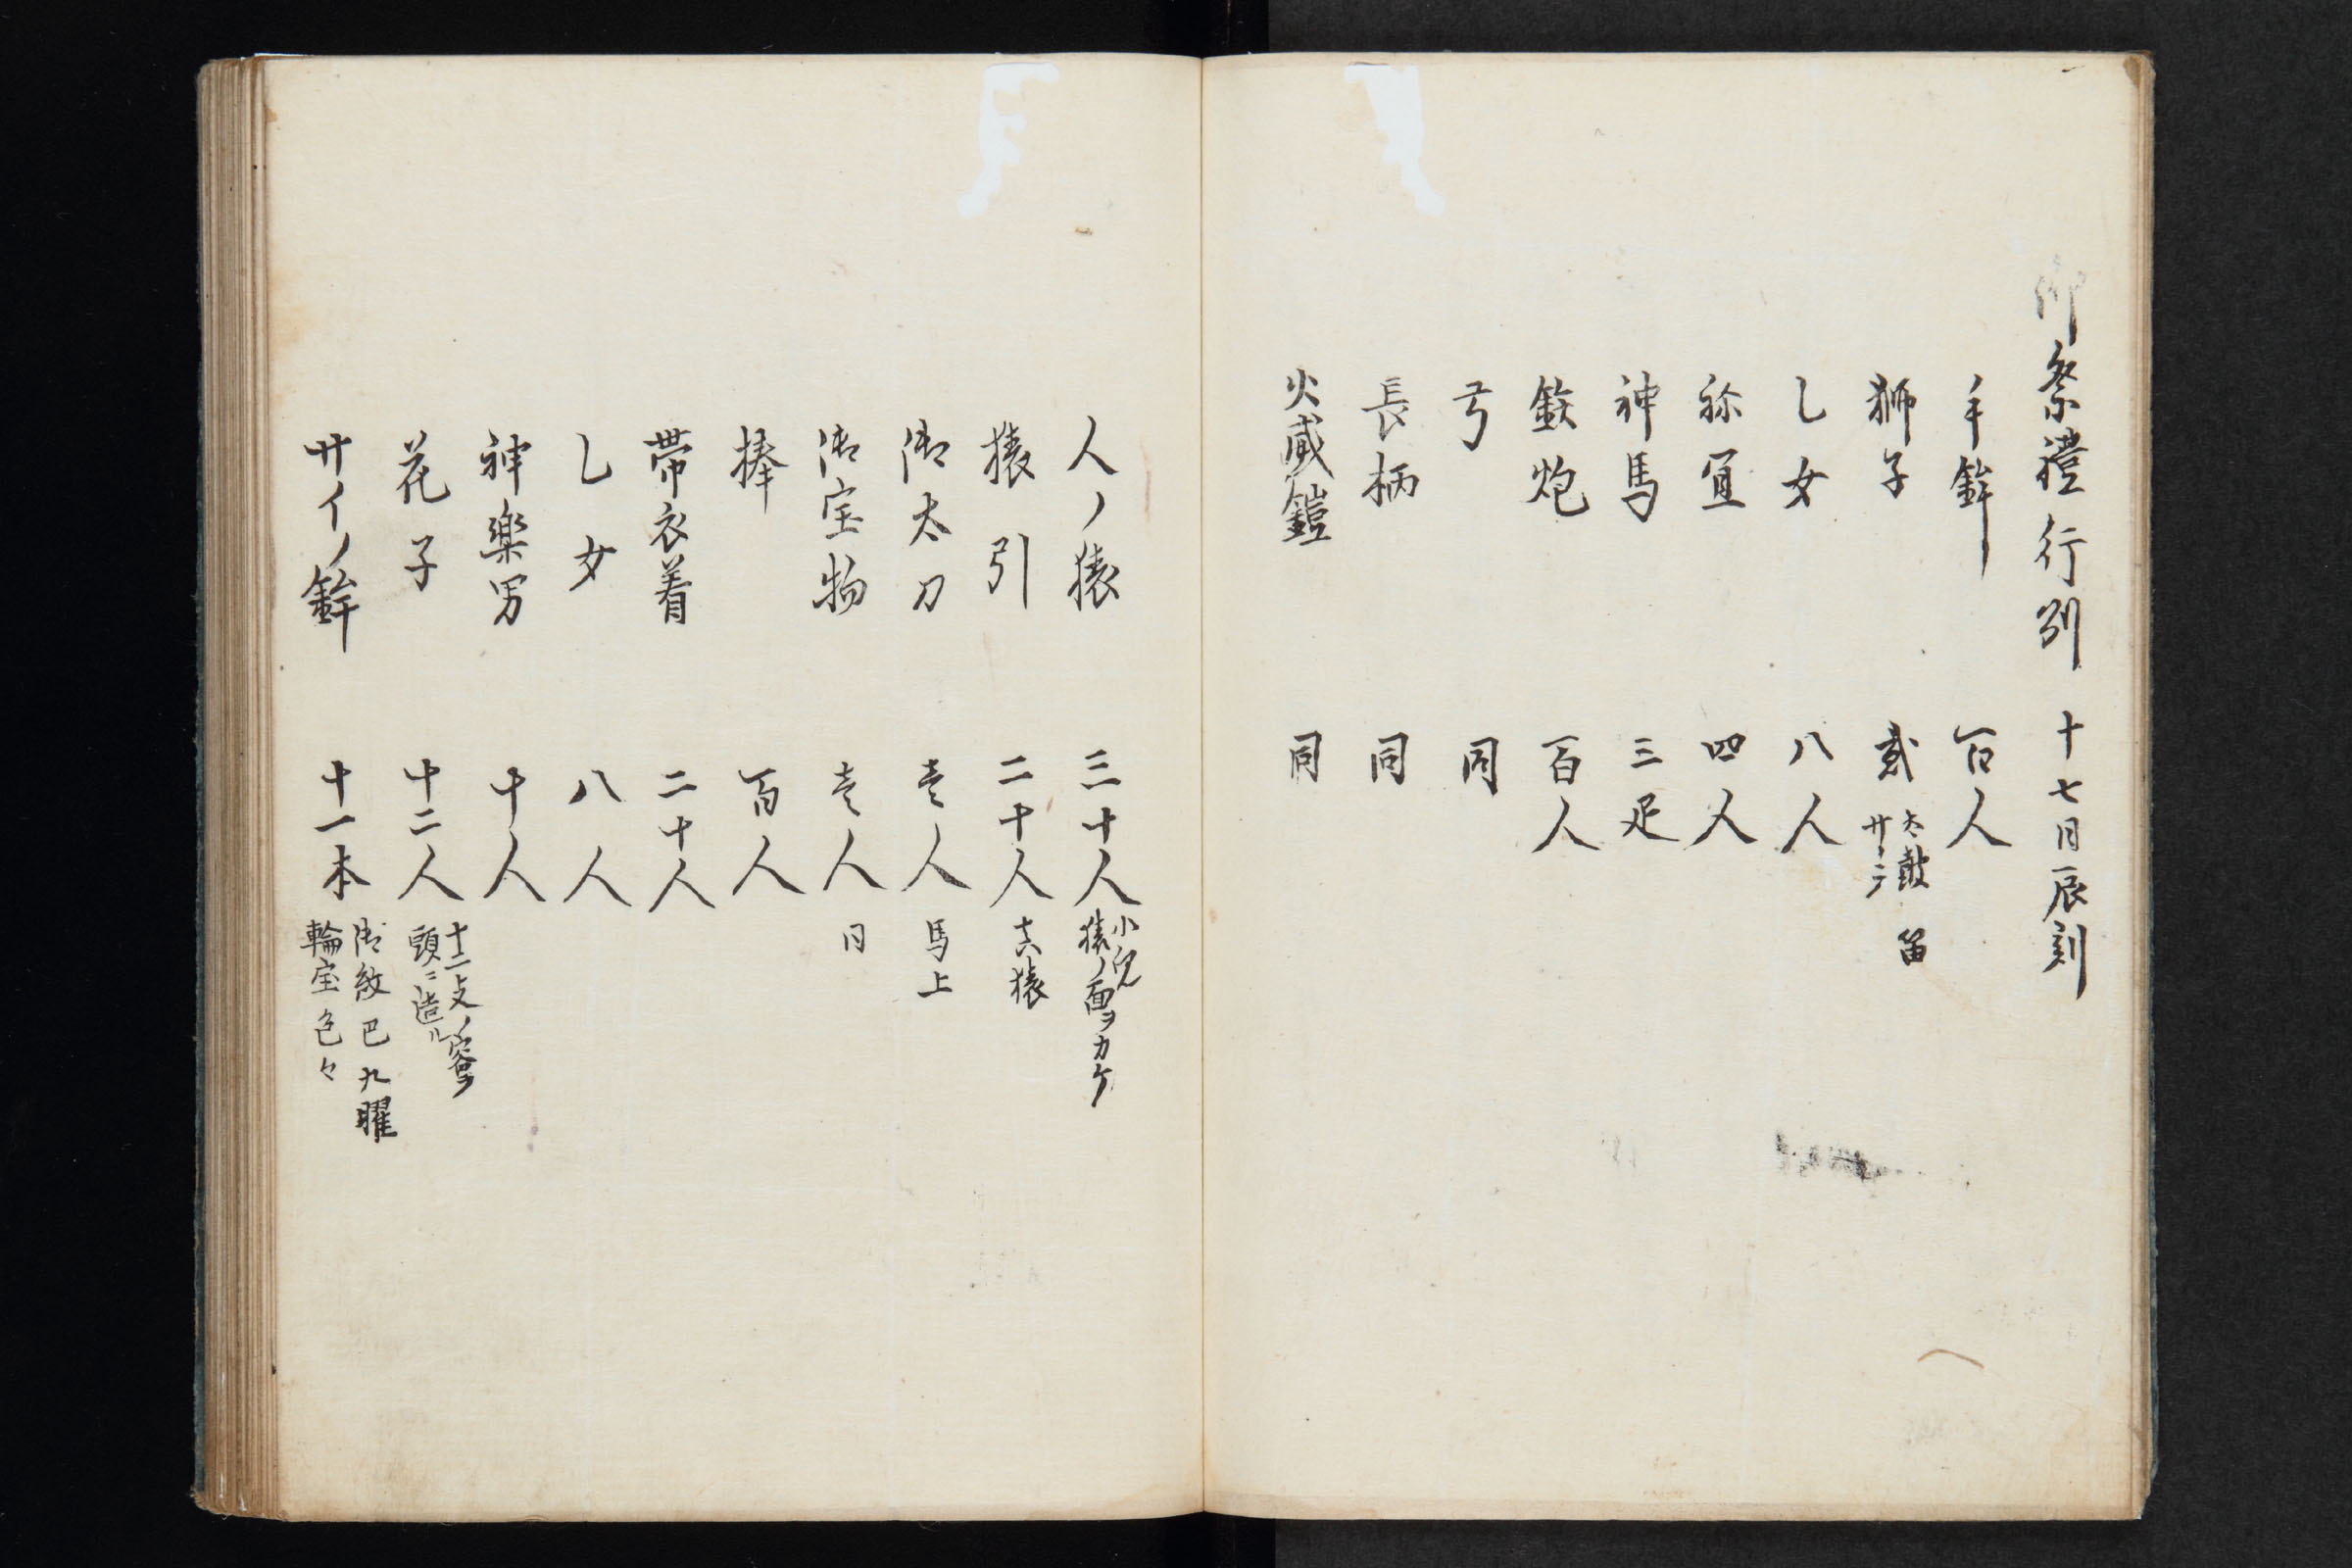 御祭禮行列 十七日辰刻
手鉾 百人
獅子 貳 太鼓 笛
サヽラ
乙女 八人
祢宜 四人
神馬 三疋
鉄炮 百人
弓 同
長柄 同
火威鎧 同
人ノ猿 三十人 小児
猿ノ面ヲカケ
猿引 二十人 真猿
御太刀 壱人 馬上
御宝物 壱人 同
捧 百人
帯衣着 二十人
乙女 八人
神楽男 十人
花子 十二人 十二支ノ容ヲ
頭ニ造ル
サイノ鉾 十一本 御紋 巴 九曜
輪宝 色々